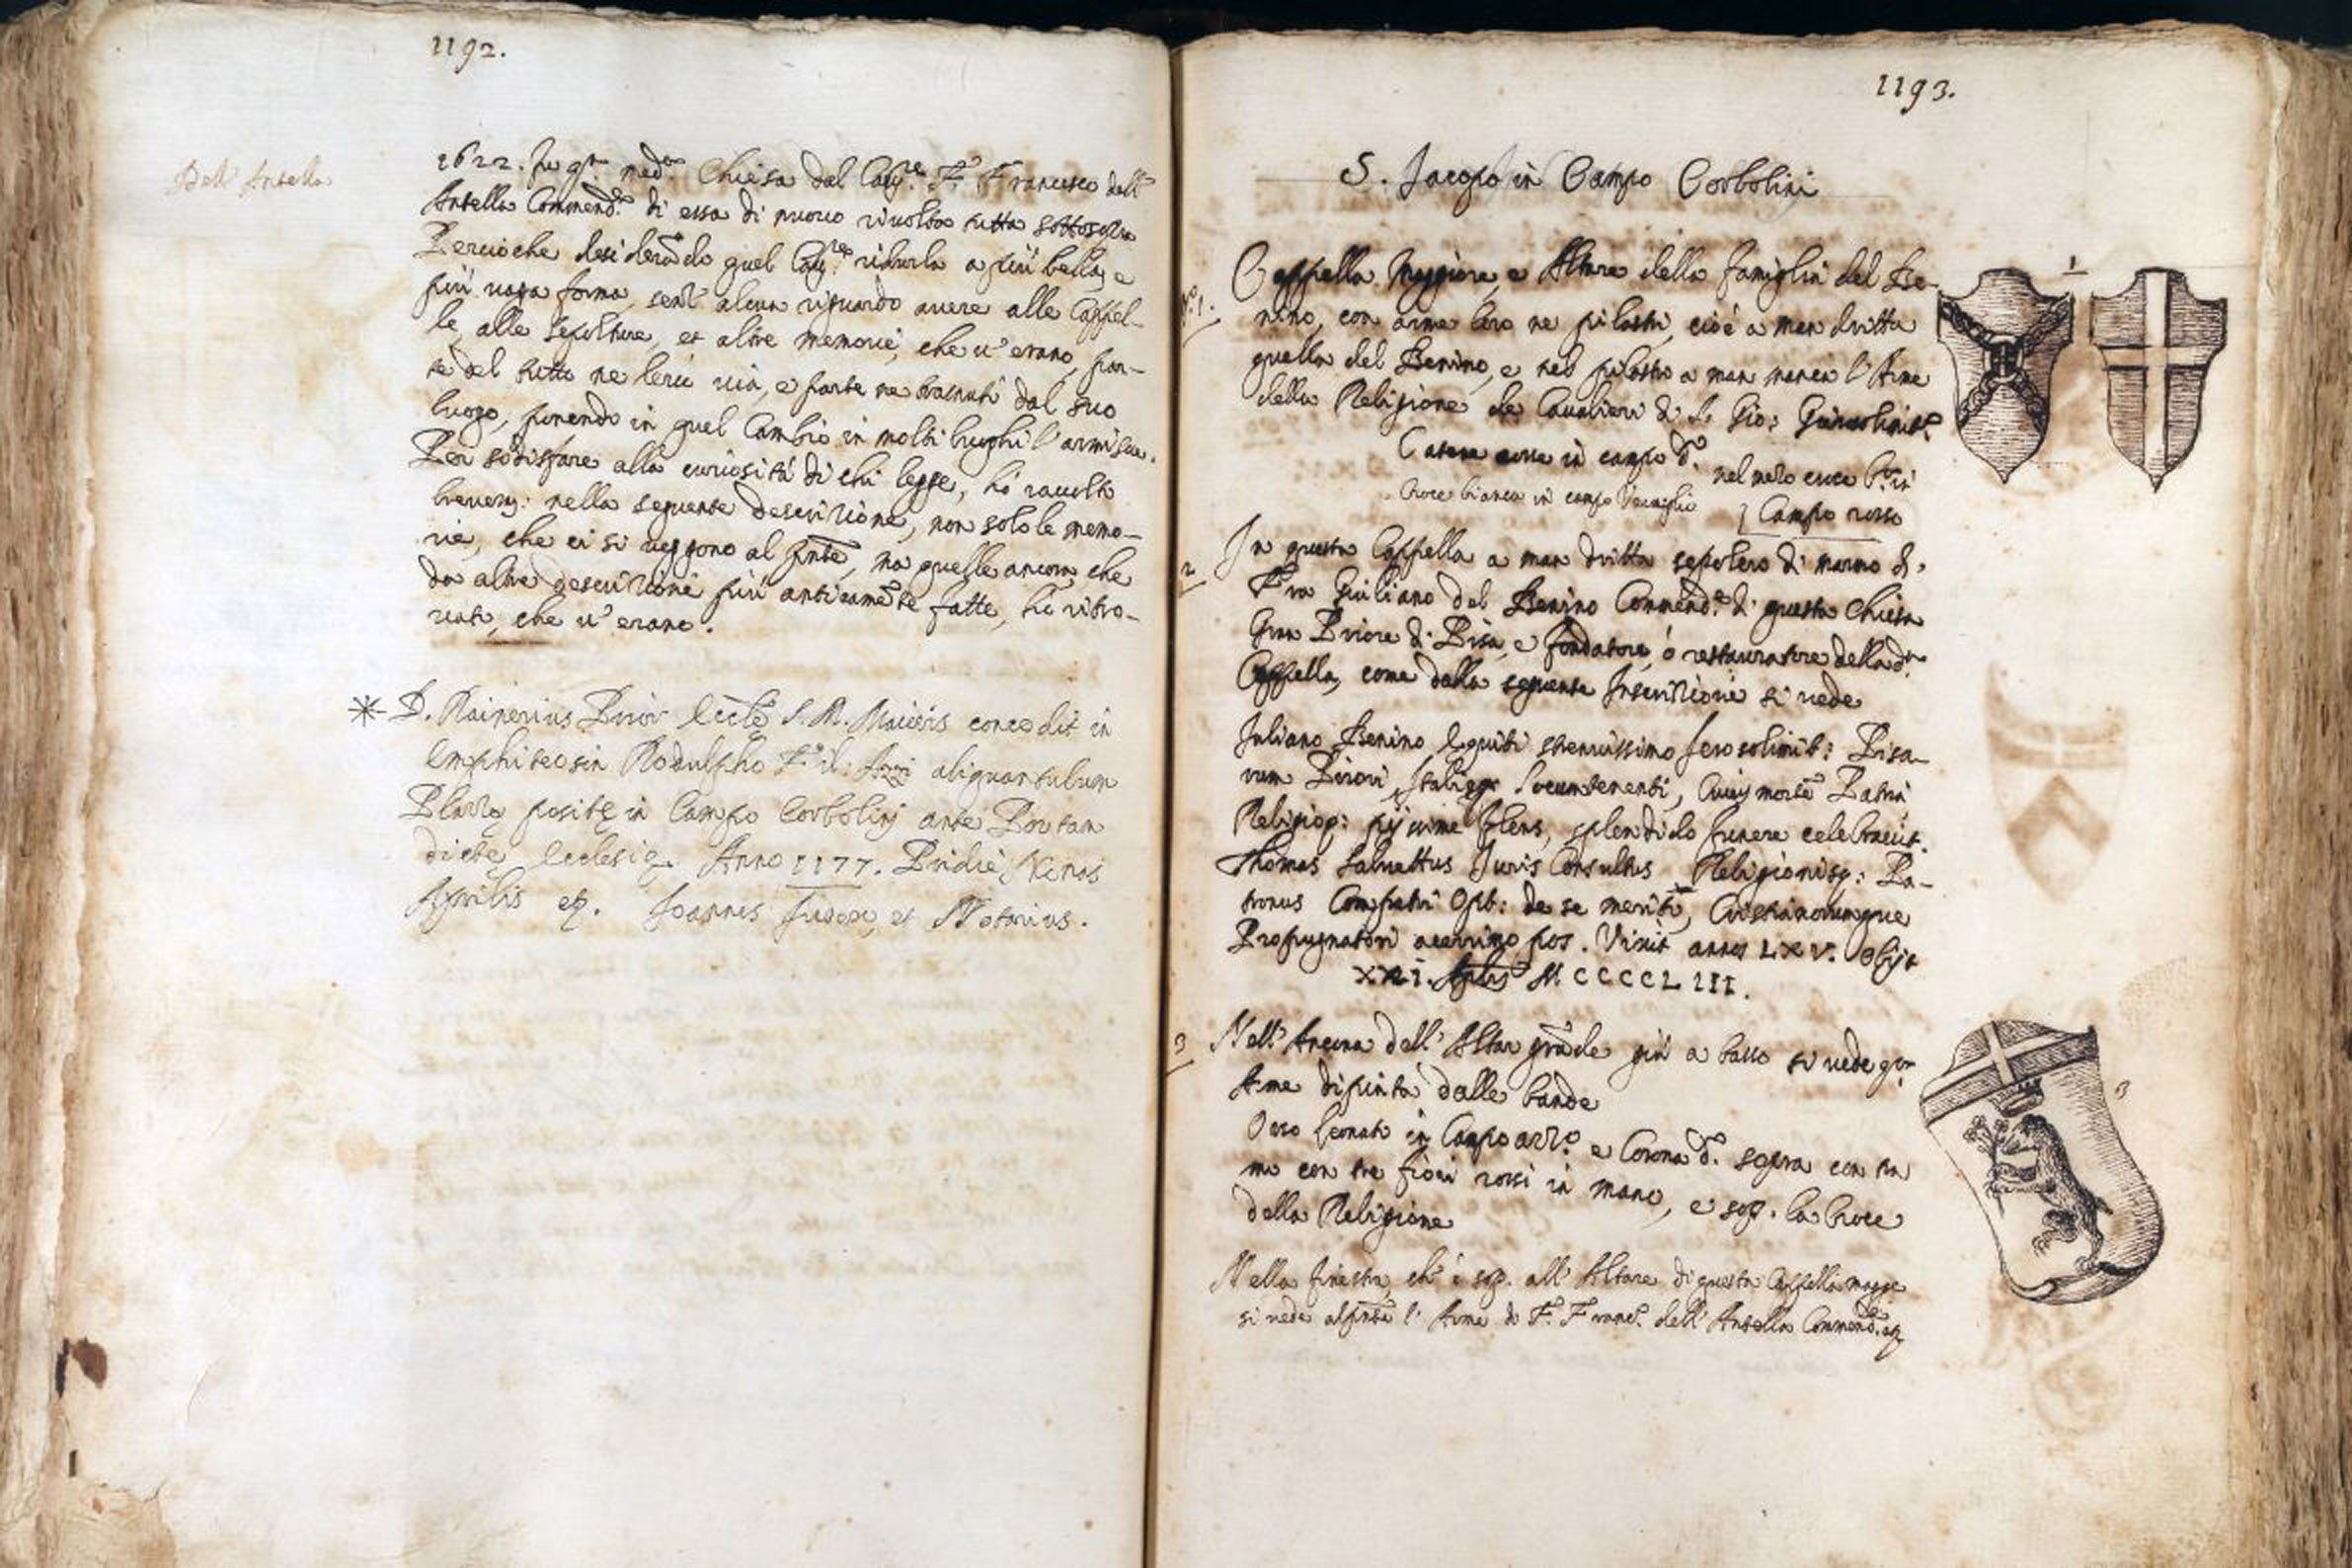 1192.
Dell' Antella
1622. fu q.ta med.a Chiesa dal Cav.re F. Francesco dell'
Antella Commend.re di essa di nuovo rivolta tutta sottosopra
Percioche desiderādo quel Cav.re ridurla a più bella, e
più vaga forma, senz' alcun riguardo avere alle Cappel-
le, alle sepolture, et altre memorie, che v' erano, par-
te del tutto ne levò via, e parte ne tramutò dal suo
luogo, ponendo in quel Cambio in molti luoghi l' armi sue.
Per sodisfare alla curiosità di chi legge, hò raccolto
brevem: nella seguente descrizione, non solo le memo-
rie, che ci si veggono al p̄nte, ma quelle ancora, che
da altre descrizioni più anticamēte fatte, hò ritro-
vato, che v' erano.
* D. Rainerius Prior Eccłę S. M. Maioris concedit in
emphiteosin Rodulpho Fil: Azzi aliquantulum
Plazzę positę in Campo Corbolinj ante Portam
dictę Ecclesię. Anno 1177. Pridiè Nonas
Aprilis ez. Joannes Judex, et Notarius.
1193.
S. Jacopo in Campo Corbolini
N.o 1.
Cappella Maggiore, e Altare della famiglia del Be-
nino, con arme loro ne pilastri, cioè a man dritta
quella del Benino, e nel pilastro a man manca l' Arme
della Religione de Cavalieri di S. Gio: Gierosolimit.o
Catene rosse in campo d' nel mezo croce b.ca in
Croce bianca in campo Vermiglio Campo rosso
1
2 In questa Cappella a man dritta sepolcro di marmo di
Fra Giuliano del Benino Commend.e di questa Chiesa
Gran Priore di Pisa, e fondatore, ò restauratore della d.a
Cappella, come dalla seguente Inscrizione si vede
Juliano Benino Equiti strenuissimo Jerosolimit: Pisa-
rum Priori, Italięq; locumtenenti, Cuius mortē Patria
Religioq: pijssime flens, splendido funere celebravit.
Thomas Salvettus Juris Consultus Religionisq: Pa-
tronus Compatri Opt: de se meriti, Cristianorumque
Propugnatori acerrimo pos. Vixit annos LXV. Obijt
XXI. Aplis MCCCCLIII.
3 Nell' Ancona dell' Altar grāde più a basso si vede q.ta
Arme dipinta dalle bande
Orso leonato in Campo azz.o e Corona d' sopra con ra
mo con tre fiori rossi in mano, e sop. la Croce
della Religione
3
Nella finestra, ch' è sop. all' Altare di questa Cappella magge
si vede al p̄nte l' Arme di F. Franc.o dell' Antella Commend.e ez